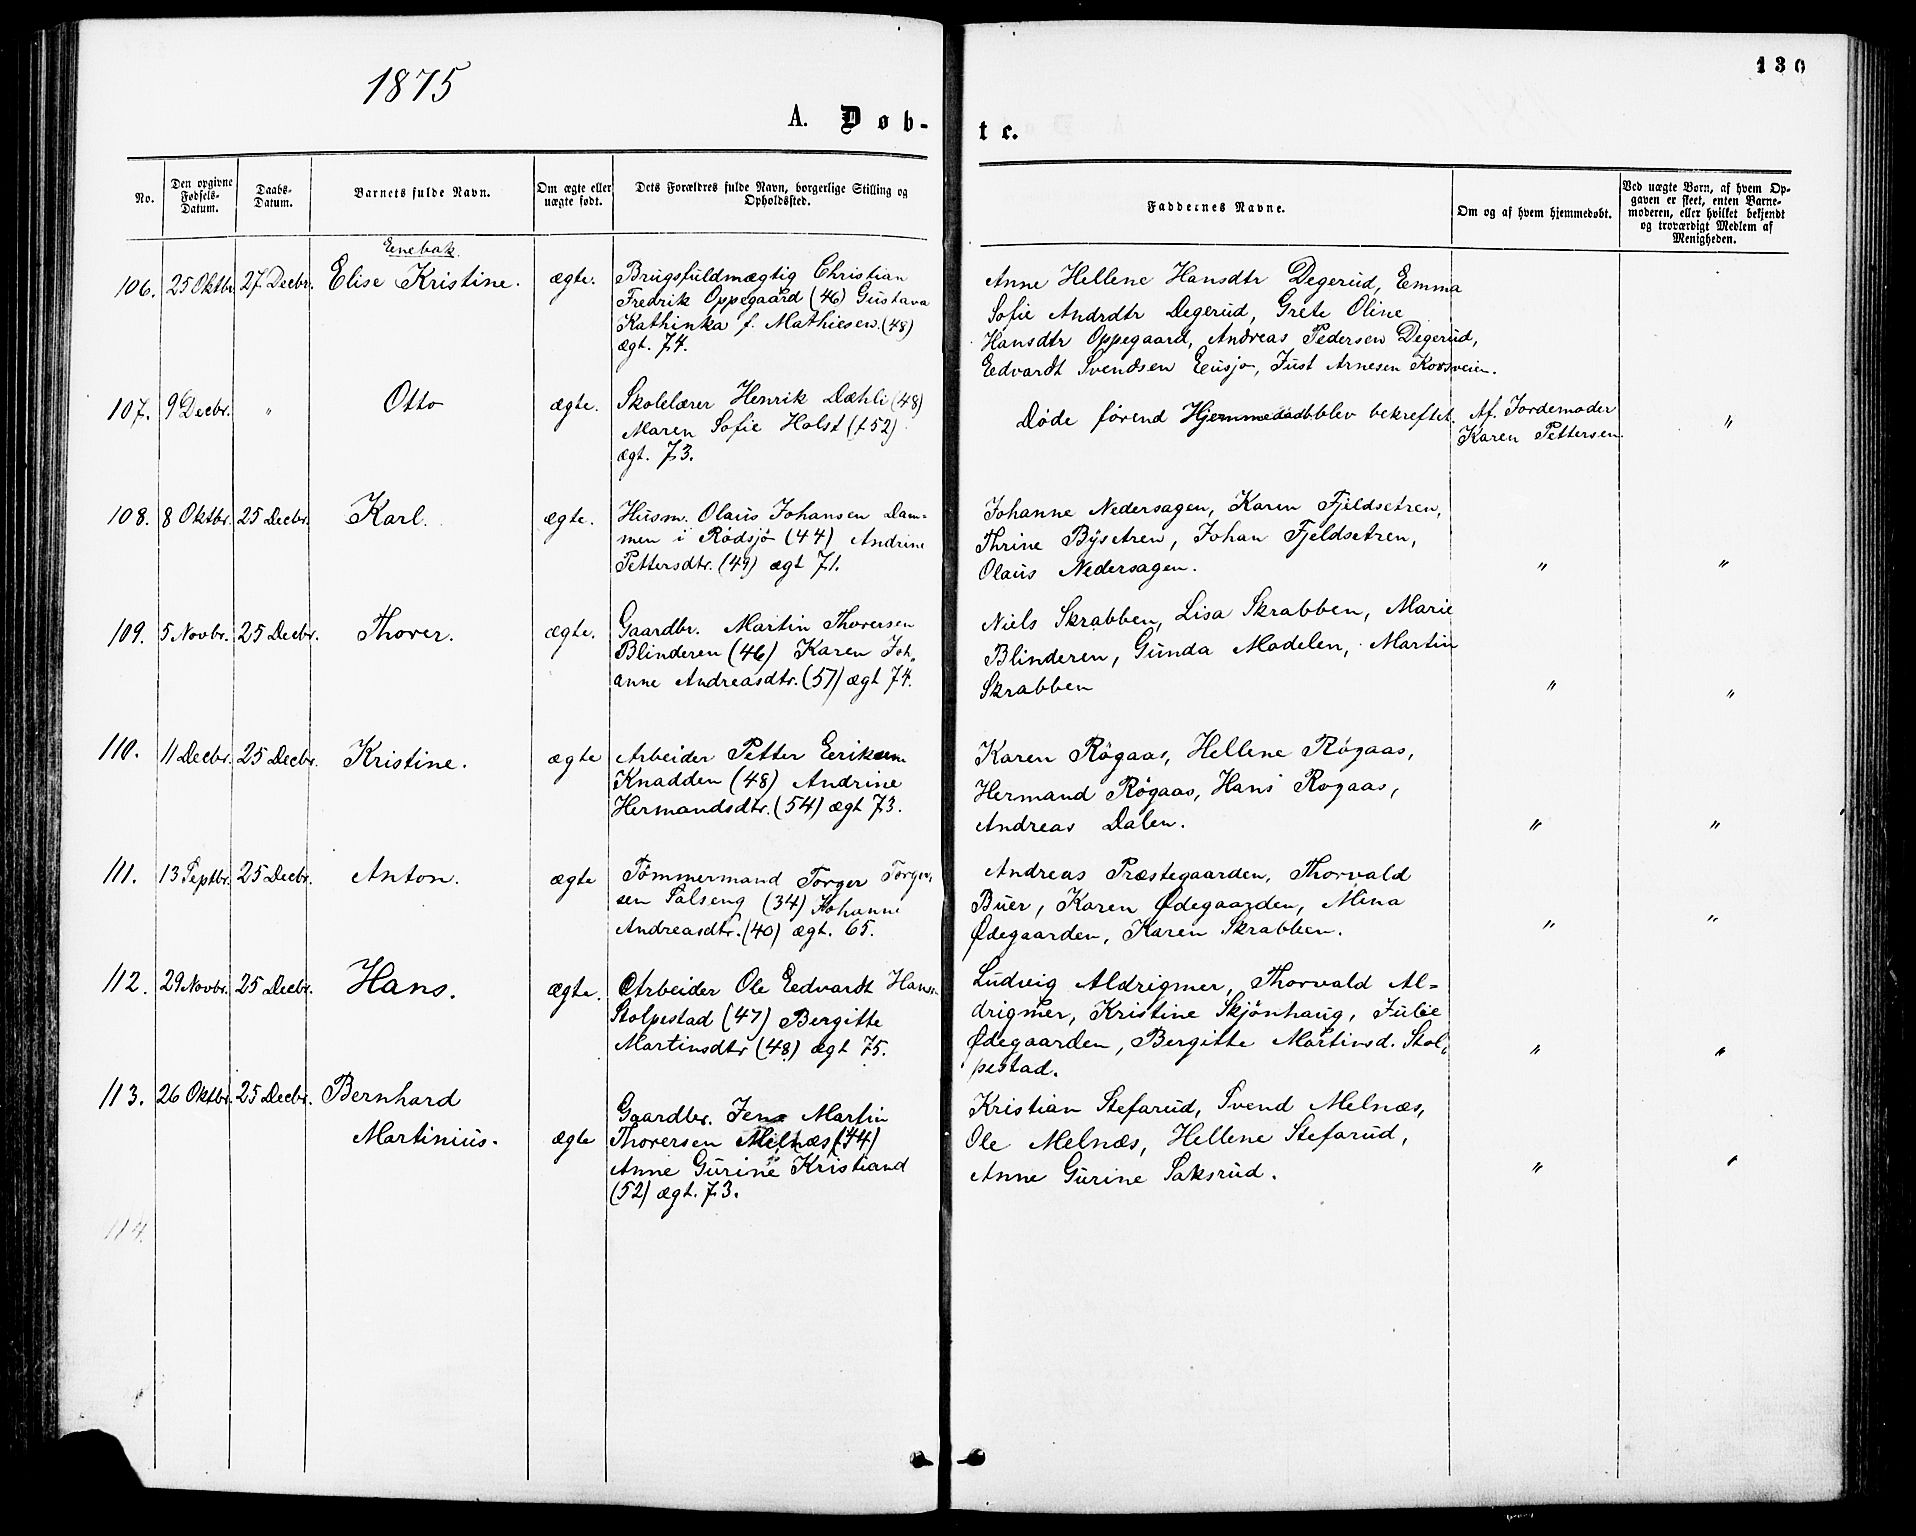 1875
130
A. Døb-
te.
No.
Den opgivne Fødsels-Datum.
Daabs-Datum.
Barnets fulde Navn.
Om ægte eller uægte født.
Dets Forældres fulde Navn, borgerlige Stilling og Opholdssted.
Faddernes Navne.
Om og af hvem hjemmedøbt.
Ved uægte Børn, af hvem Op-
gaven er skeet, enten Barne-
moderen, eller hvilket bekjendt
og troværdigt Medlem af
Menigheden.
Eenebak
106. 25 Oktbr. 27 Decbr. Elise Kristine. ægte.
Brugsfuldmægtig Christian
Fredrik Oppegaard (46) Gustava
Kathinka f. Mathiesen (48)
ægt. 74.
Anne Hellene Hansdtr Degerud, Emma
Sofie Andrdtr Degerud, Grete Oline
Hansdtr Oppegaard, Andreas Pedersen Degerud,
Eedvardt Svendsen Eeusjø, Just Arnesen Korsveien.
107. 9 Decbr. " Otto ægte.
Skolelærer Henrik Dæhli (48)
Maren Sofie Holst (52)
ægt. 73.
Døde førend Hjemmedaab blev bekreftet.
Af. Jordemoder
Karen Pettersen
"
108. 8 Oktbr. 25 Decbr. Karl. ægte.
Husm. Olaus Johansen Dam-
men i Rødsjø (44) Andrine
Pettersdtr. (49) ægt 71.
Johanne Nedersagen, Karen Fjeldsetren,
Thrine Bysetren, Johan Fjeldsetren,
Olaus Nedersagen. " "
109. 5 Novbr. 25 Decbr. Thorer. ægte.
Gaardbr. Martin Thoversen
Blinderen (46) Karen Joh,
anne Andreasdtr. (57) ægt 74.
Niels Skrabben, Lisa Skrabben, Marie
Blinderen, Gunda Modelen, Martin
Skrabben " "
110. 11 Decbr. 25 Decbr. Kristine. ægte
Arbeider Petter Eeriksen
Knadden (48) Andrine
Hermandsdtr. (54) ægt 73.
Karen Røgaas, Hellene Røgaas,
Hermand Røgaas, Hans Røgaas,
Andreas Dalen. " "
111. 13 Septbr. 25 Decbr. Anton. ægte
Tømmermand Torger Torger,
sen Salseng (34) Johanne
Andreasdtr. (40) ægt. 65.
Andreas Præstegaarden, Thorvald
Buer, Karen Ødegaarden, Mina
Ødegaarden, Karen Skrabben. " "
112. 29 Novbr. 25 Decbr. Hans. ægte.
Arbeider Ole Eedvardt Hans.
Stolpestad (47) Bergitte
Martinsdtr (48) ægt 75.
Ludvig Aldrigmer, Thorvald Al-
drigmer, Kristine Skjønhaug, Julie
Ødegaarden, Bergitte Martinsd. Stol,
pestad. " "
113. 26 Oktbr. 25 Decbr. Bernhard
Martinius. ægte
Gaardbr. Jens Martin
Thoversen Melnæs (44)
Anne Gurine Kristiand
(52) ægt. 73.
Kristian Stefarud, Svend Melnæs,
Ole Melnæs, Hellene Stefarud,
Anne Gurine Saksrud. " "
114.